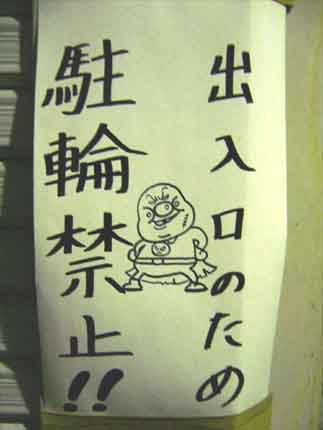 出入口のため
駐輪禁止!!